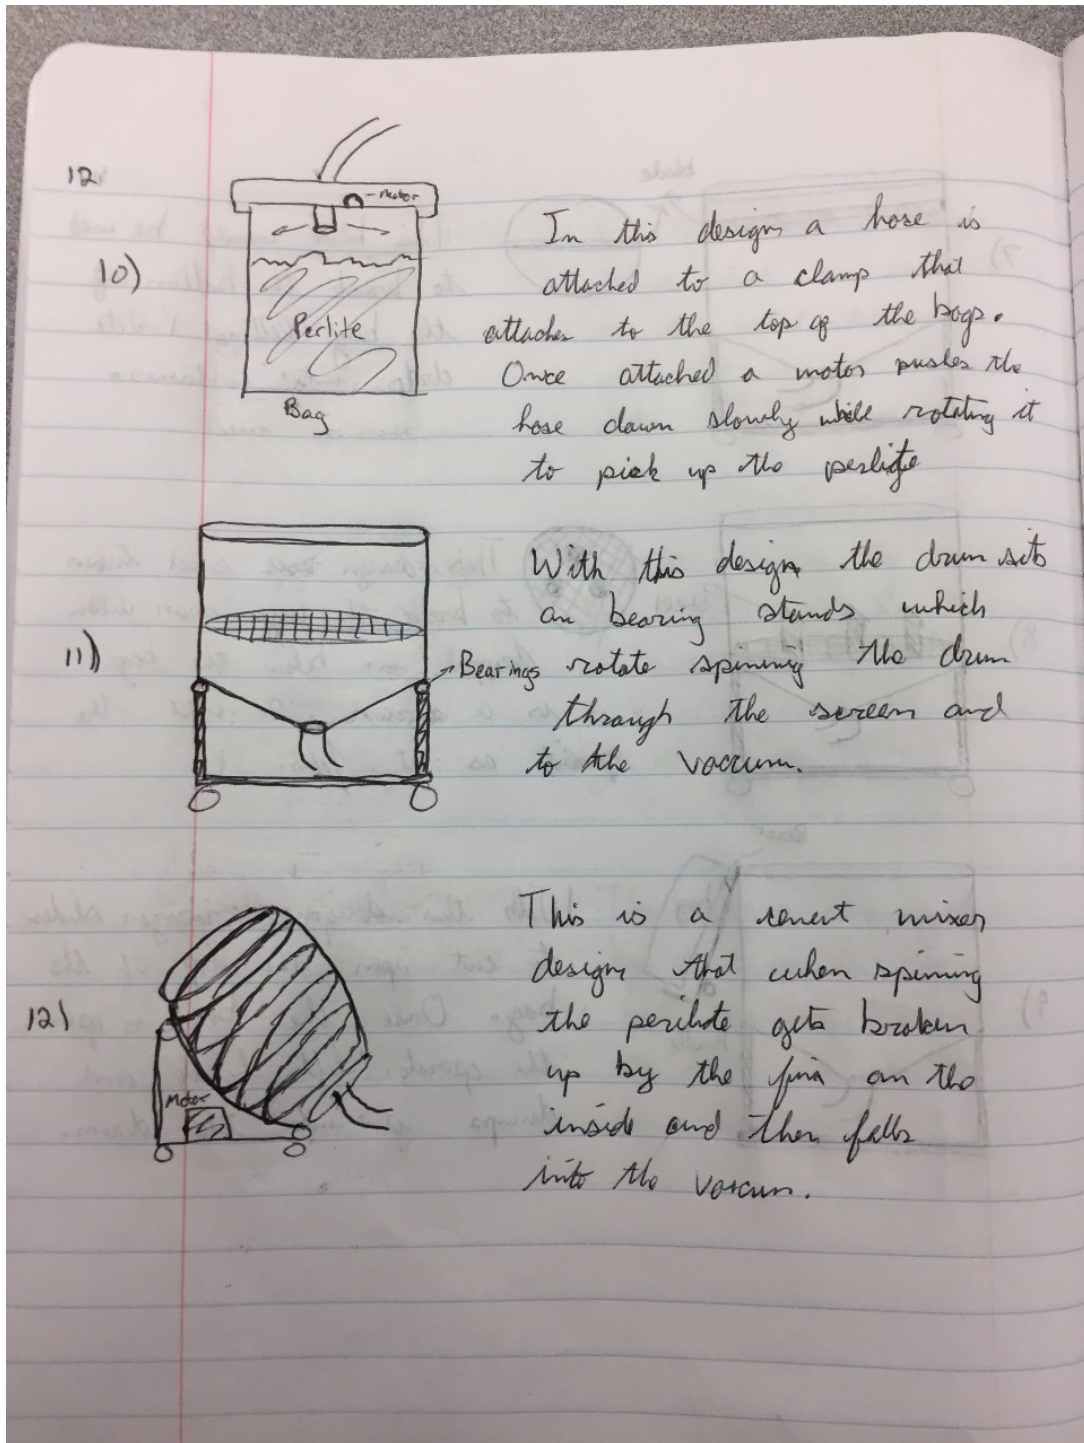 12
10)
-motor
Perlite
Bag
In this design a hose is
attached to a clamp that
attaches to the top of the bags.
Once attached a motor pushes the
hose down slowly while rotating it
to pick up the perlite
11)
Bearings
With this design the drum sits
on bearing stands which
rotate spinning the drum
through the screen and
to the vaccum.
12)
Motor
This is a cement mixer
design that when spinning
the perilite gets broken
up by the fins on the
inside and then falls
into the vaccum.